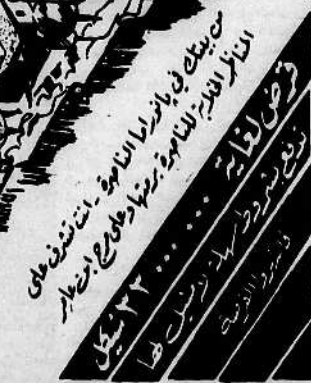 من بيتك في بانوراما الناصرة - انت تشرف على
المناظر الخلابة للناصرة برمتها وعلى مرج ابن عامر
قرض لغاية ... ... ٣٢ شيكل
تدفع بشروط سهلة لا مثيل لها